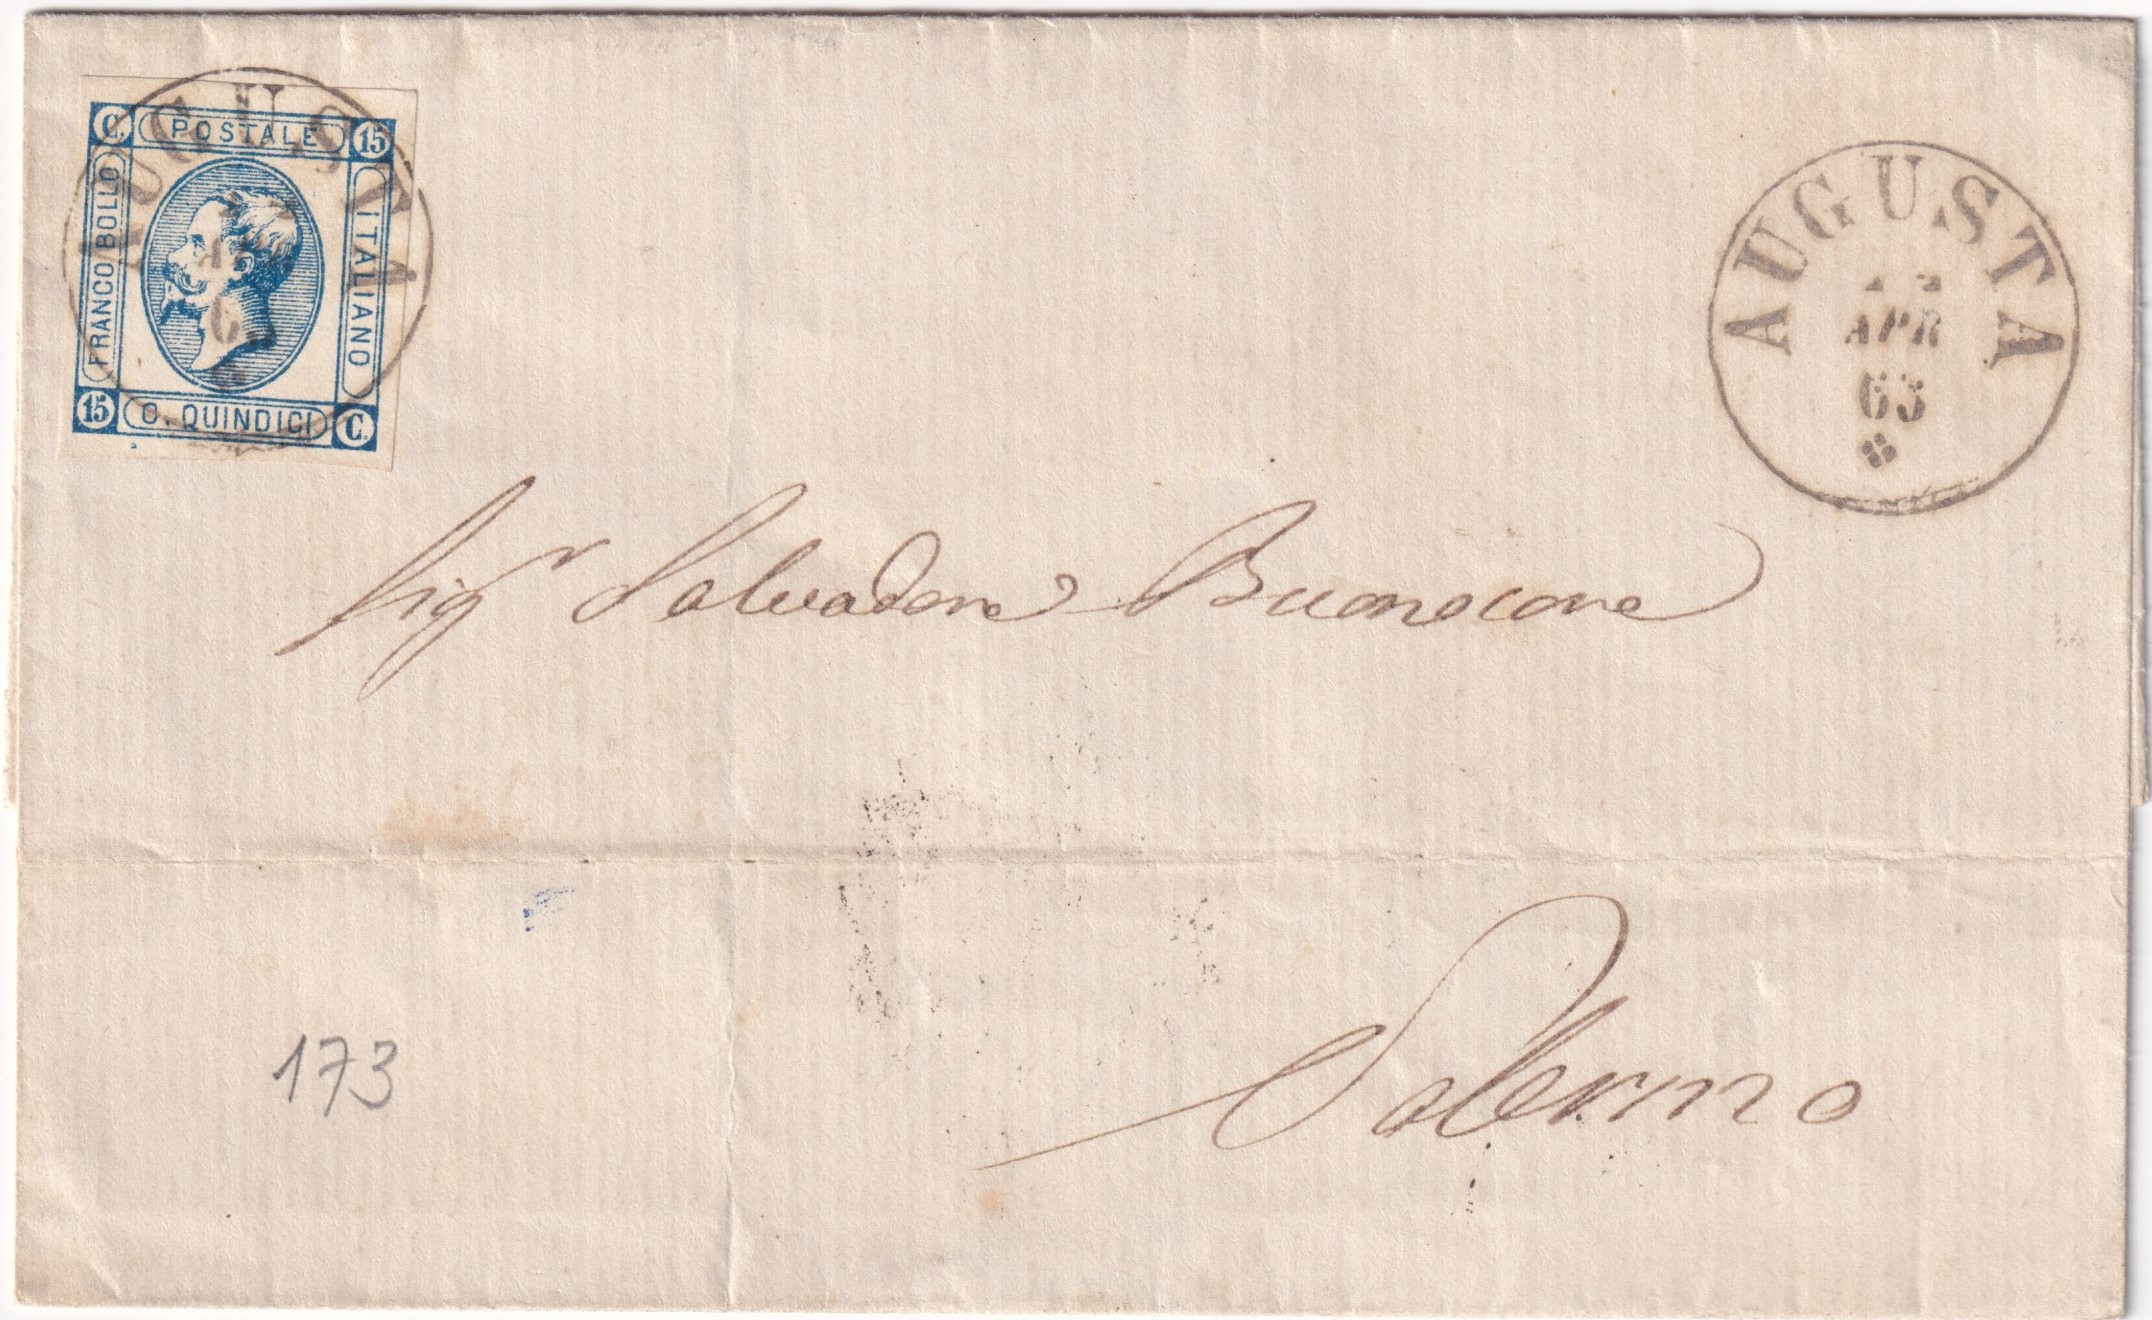 AUGUSTA
C. POSTALE 15
FRANCO BOLLO
ITALIANO
15 C. QUINDICI C.
AUGUSTA
APR
63
Sigr Salvadore Buonocore
Palermo
173